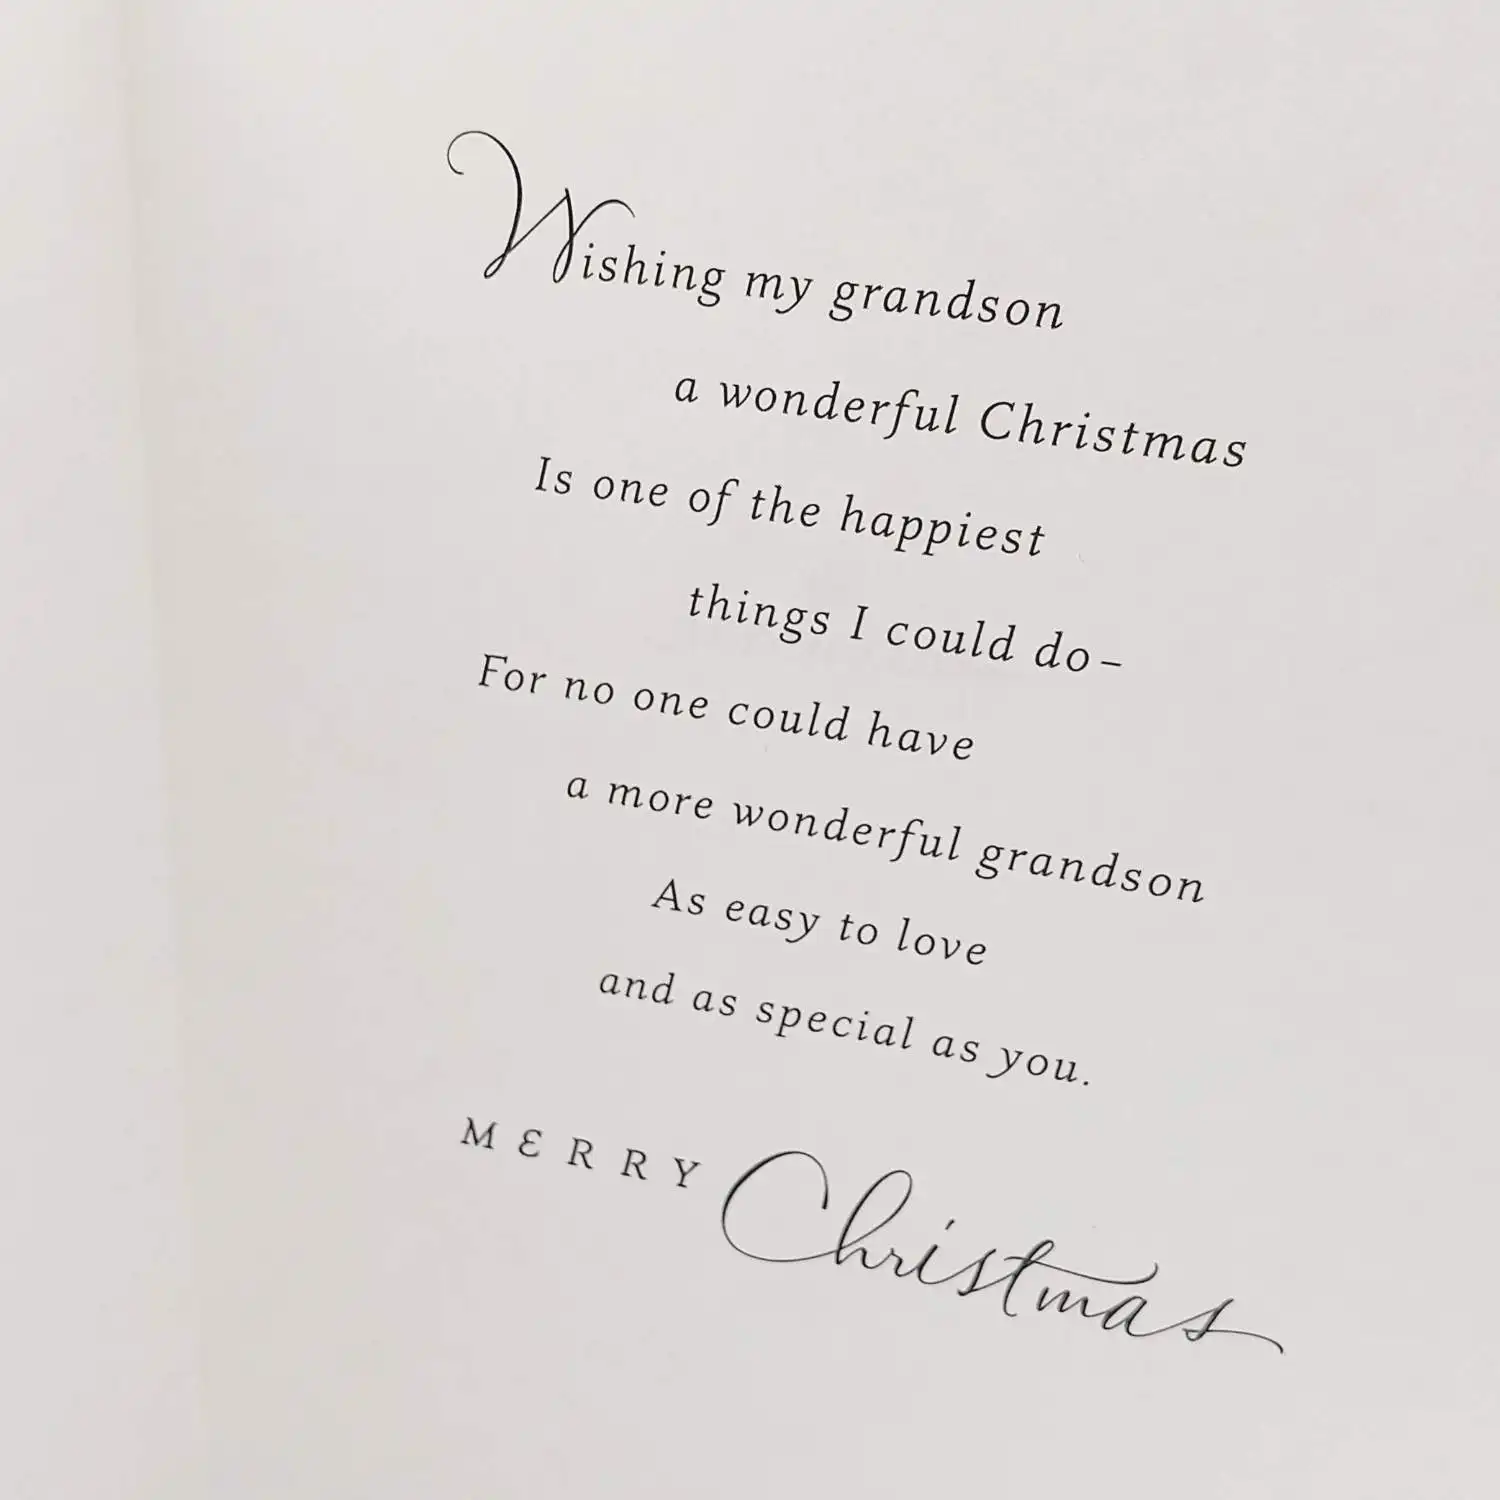 Wishing my grandson
a wonderful Christmas
Is one of the happiest
things I could do–
For no one could have
a more wonderful grandson
As easy to love
and as special as you.
MERRY Christmas